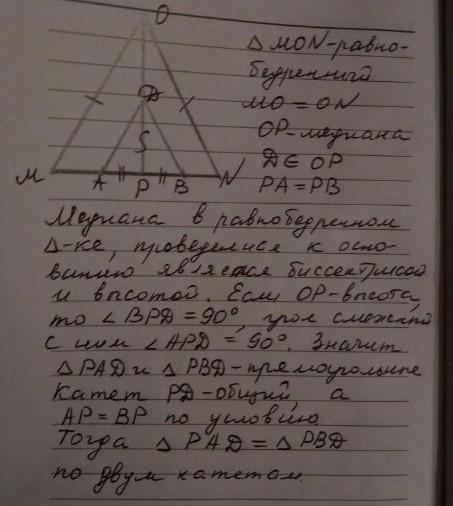 O
△MON-равно-
бедренный
MO = ON
OP-медиана
D∈ OP
PA = PB
D
M A P B N
Медиана в равнобедренном
△-ке, проведенная к осно-
ванию является биссектрисой
и высотой. Если OP-высота,
то ∠BPD = 90°, угол смежный
с ним ∠APD = 90°. Значит
△PAD и △PBD-прямоугольные
Катет PD-общий, а
AP = BP по условию.
Тогда △ PAD = △ PBD
по двум катетам.